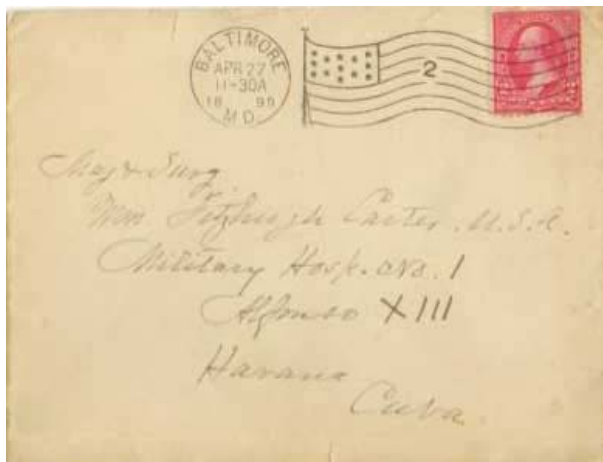 BALTIMORE
APR 27
11-30A
18 99
M D.
2
Maj & Surg.
Wm Fitzhugh Carter. U.S.A.
Military Hosp. No. 1
Alfonso XIII
Havana
Cuba.